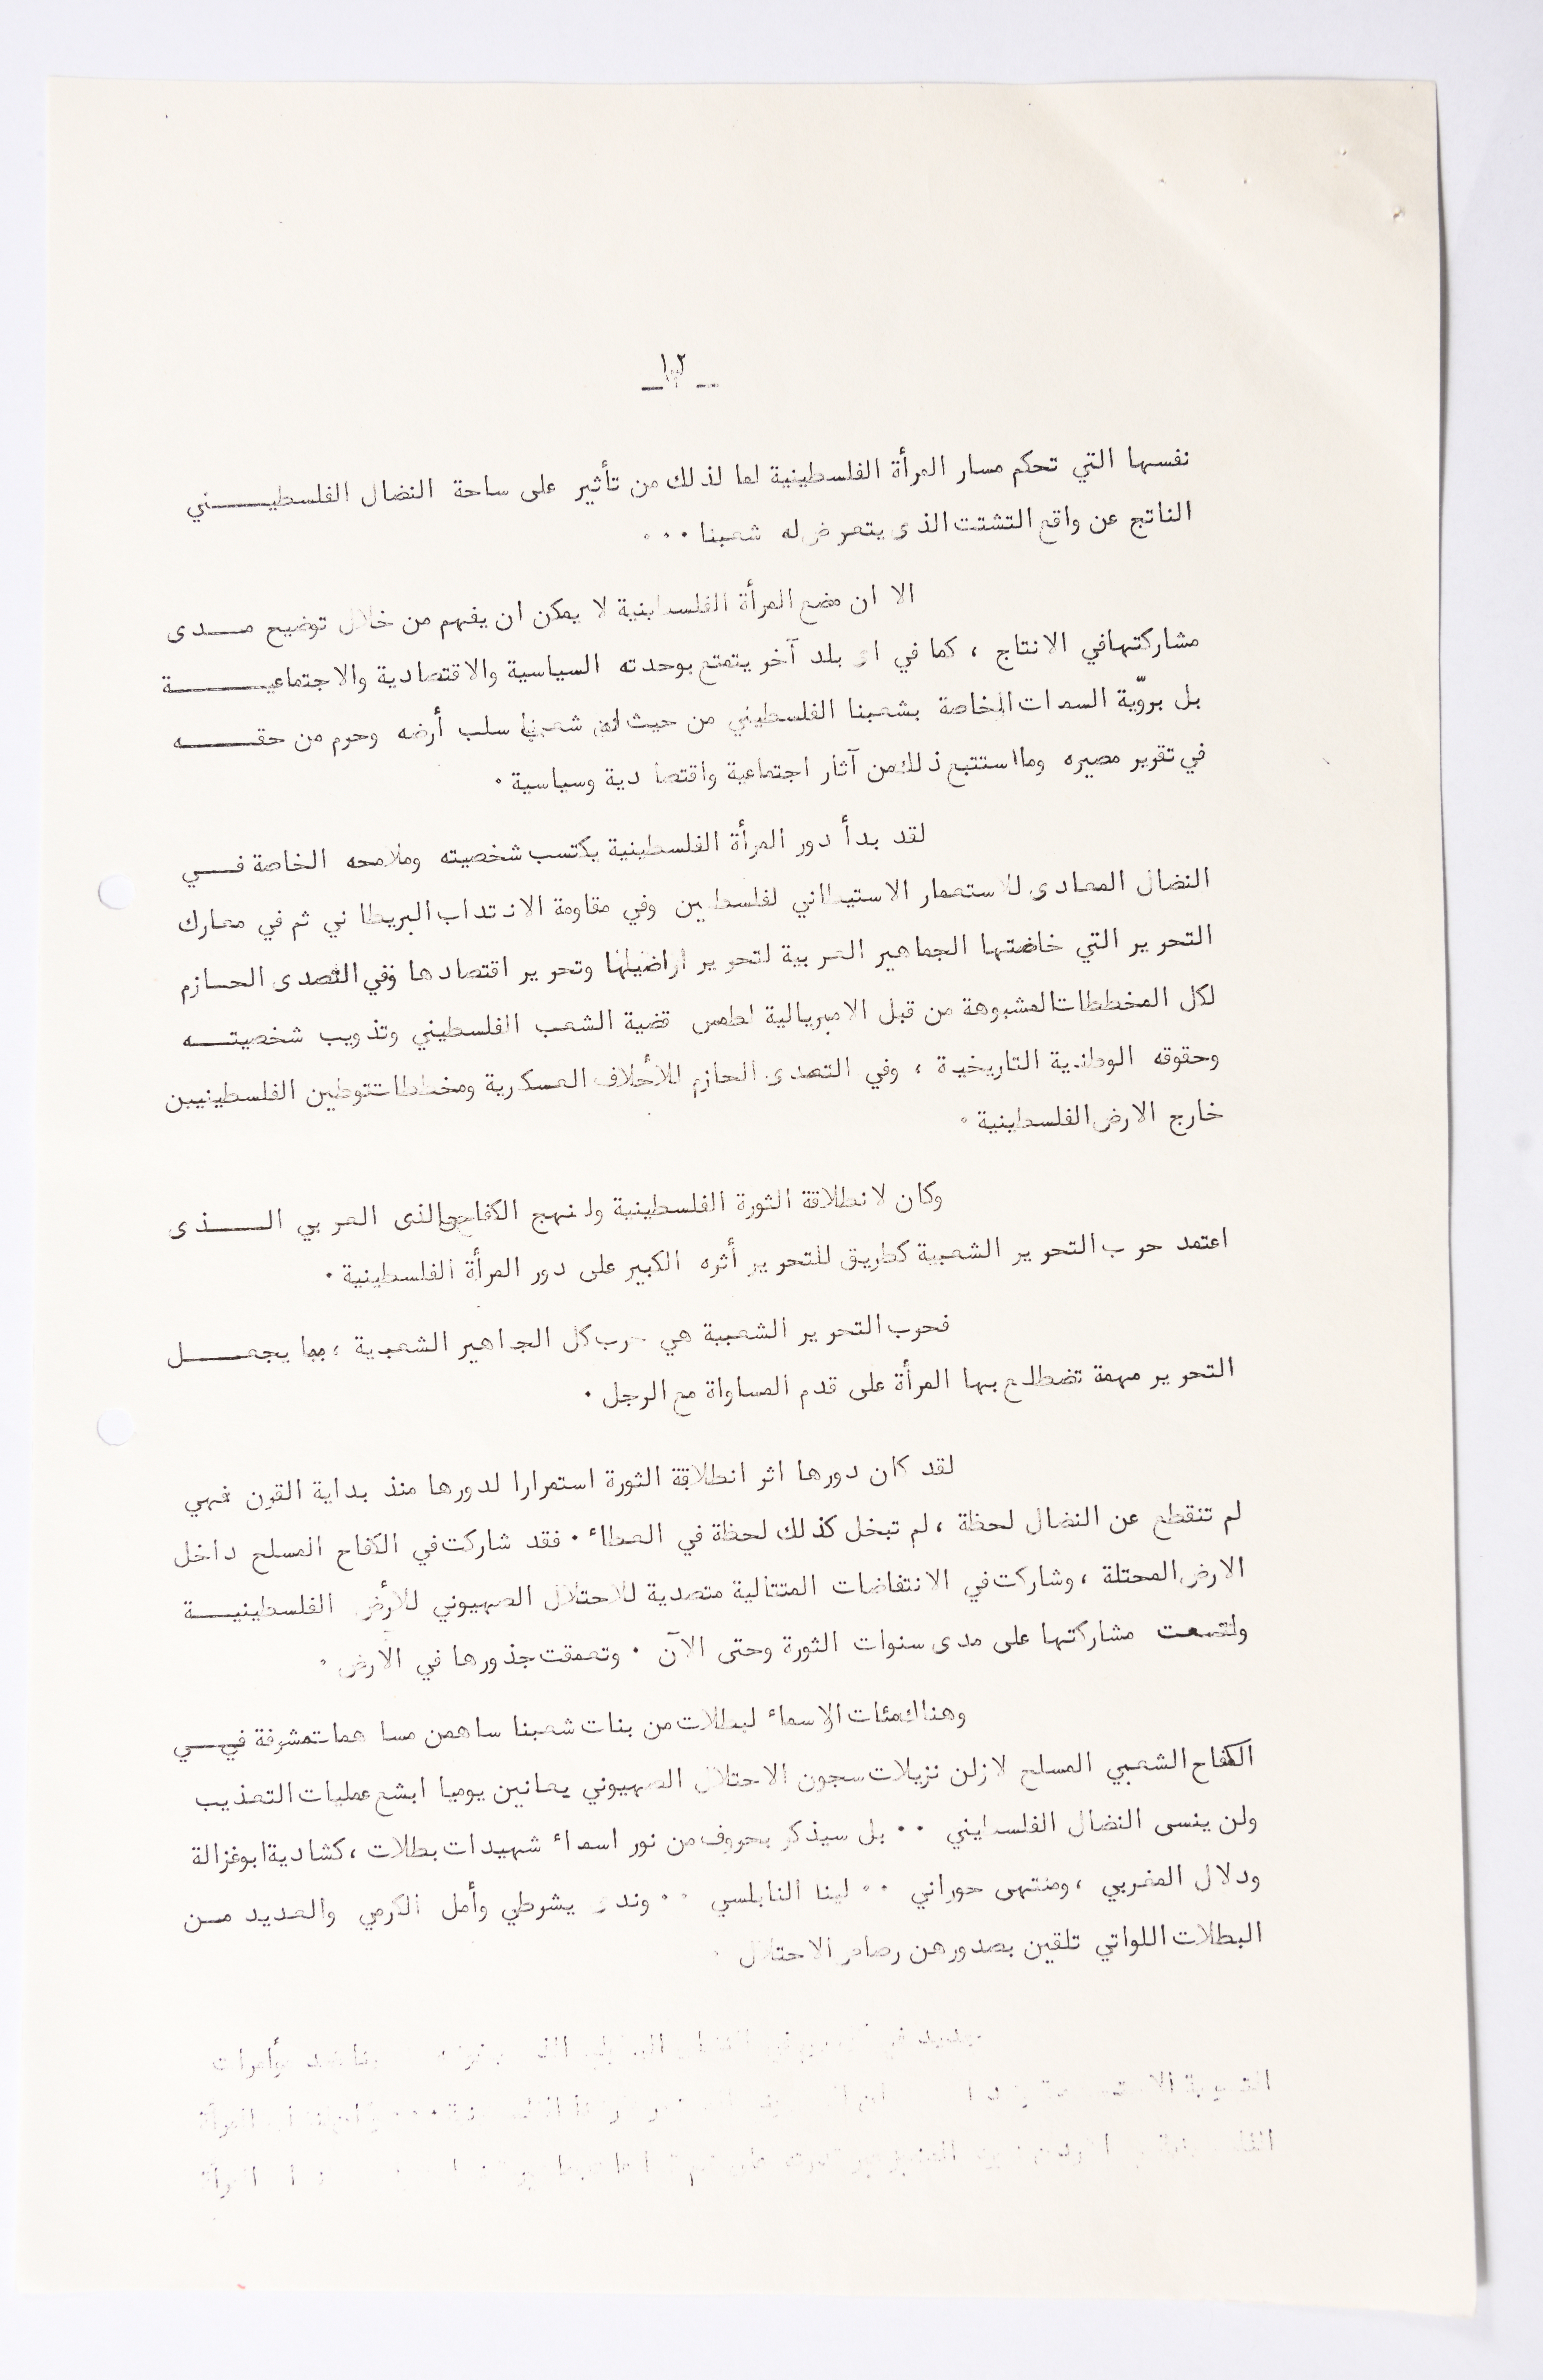 ١٢
نفسها التي تحكم مسار المرأة الفلسطينية لما لذلك من تأثير على ساحة النضال الفلسطيـــــني
الناتج عن واقع التشتت الذى يتعرض له شعبنا ٠٠٠
الا ان وضع المرأة الفلسطينية لا يمكن ان يفهم من خلال توضيح مـــدى
مشاركتها في الانتاج ، كما في اى بلد آخر يتمتع بوحدته السياسية والاقتصادية والاجتماعيـــــــة
بل بروّية السمات الخاصة بشعبنا الفلسطيني من حيث ان شعبنا سلب أرضه وحرم من حقـــــه
في تقرير مصيره وما استتبع ذلك من آثار اجتماعية واقتصادية وسياسية ٠
لقد بدأ دور المرأة الفلسطينية يكتسب شخصيته وملامحه الخاصة فـــي
النضال المعادى للاستعمار الاستيطاني لفلسطين وفي مقاومة الانتداب البريطاني ثم في معارك
التحرير التي خاضتها الجماهير العربية لتحرير اراضيها وتحرير اقتصادها وفي التصدى الحـازم
لكل المخططات المشبوهة من قبل الامبريالية لطمس قضية الشعب الفلسطيني وتذويب شخصيتـــه
وحقوقه الوطنية التاريخية ، وفي التصدى الحازم للأحلاف العسكرية ومخططات توطين الفلسطينيين
خارج الارض الفلسطينية ٠
وكان لانطلاقة الثورة الفلسطينية ولنهج الكفاحي الذى العربي الـــــذى
اعتمد حرب التحرير الشعبية كطريق للتحرير أثره الكبير على دور المرأة الفلسطينية ٠
فحرب التحرير الشعبية هي حرب كل الجماهير الشعبية ، مما يجعـــــل
التحرير مهمة تضطلع بها المرأة على قدم المساواة مع الرجل ٠
لقد كان دورها اثر انطلاقة الثورة استمرارا لدورها منذ بداية القرن فهي
لم تنقطع عن النضال لحظة ، لم تبخل كذلك لحظة في العطاء ٠ فقد شاركت في الكفاح المسلح داخل
الارض المحتلة ، وشاركت في الانتفاضات المتتالية متصدية للاحتلال الصهيوني للأرض الفلسطينيـــة
واتسعت مشاركتها على مدى سنوات الثورة وحتى الآن ٠ وتعمقت جذورها في الارض ٠
وهناك مئات الاسماء لبطلات من بنات شعبنا ساهمن مساهمات مشرفة فـــي
الكفاح الشعبي المسلح لازلن نزيلات سجون الاحتلال الصهيوني يعانين يوميا ابشع عمليات التعذيب
ولن ينسى النضال الفلسطيني ٠٠ بل سيذكر بحروف من نور اسماء شهيدات بطلات ، كشادية ابوغزالة
ودلال المغربي ، ومنتهى حوراني ٠٠ لينا النابلسي ٠٠ وندى يشرطي وأمل الكرمي والعديد مـن
البطلات اللواتي تلقين بصدورهن رصاص الاحتلال ٠
مؤامرات
المرأة
المرأة